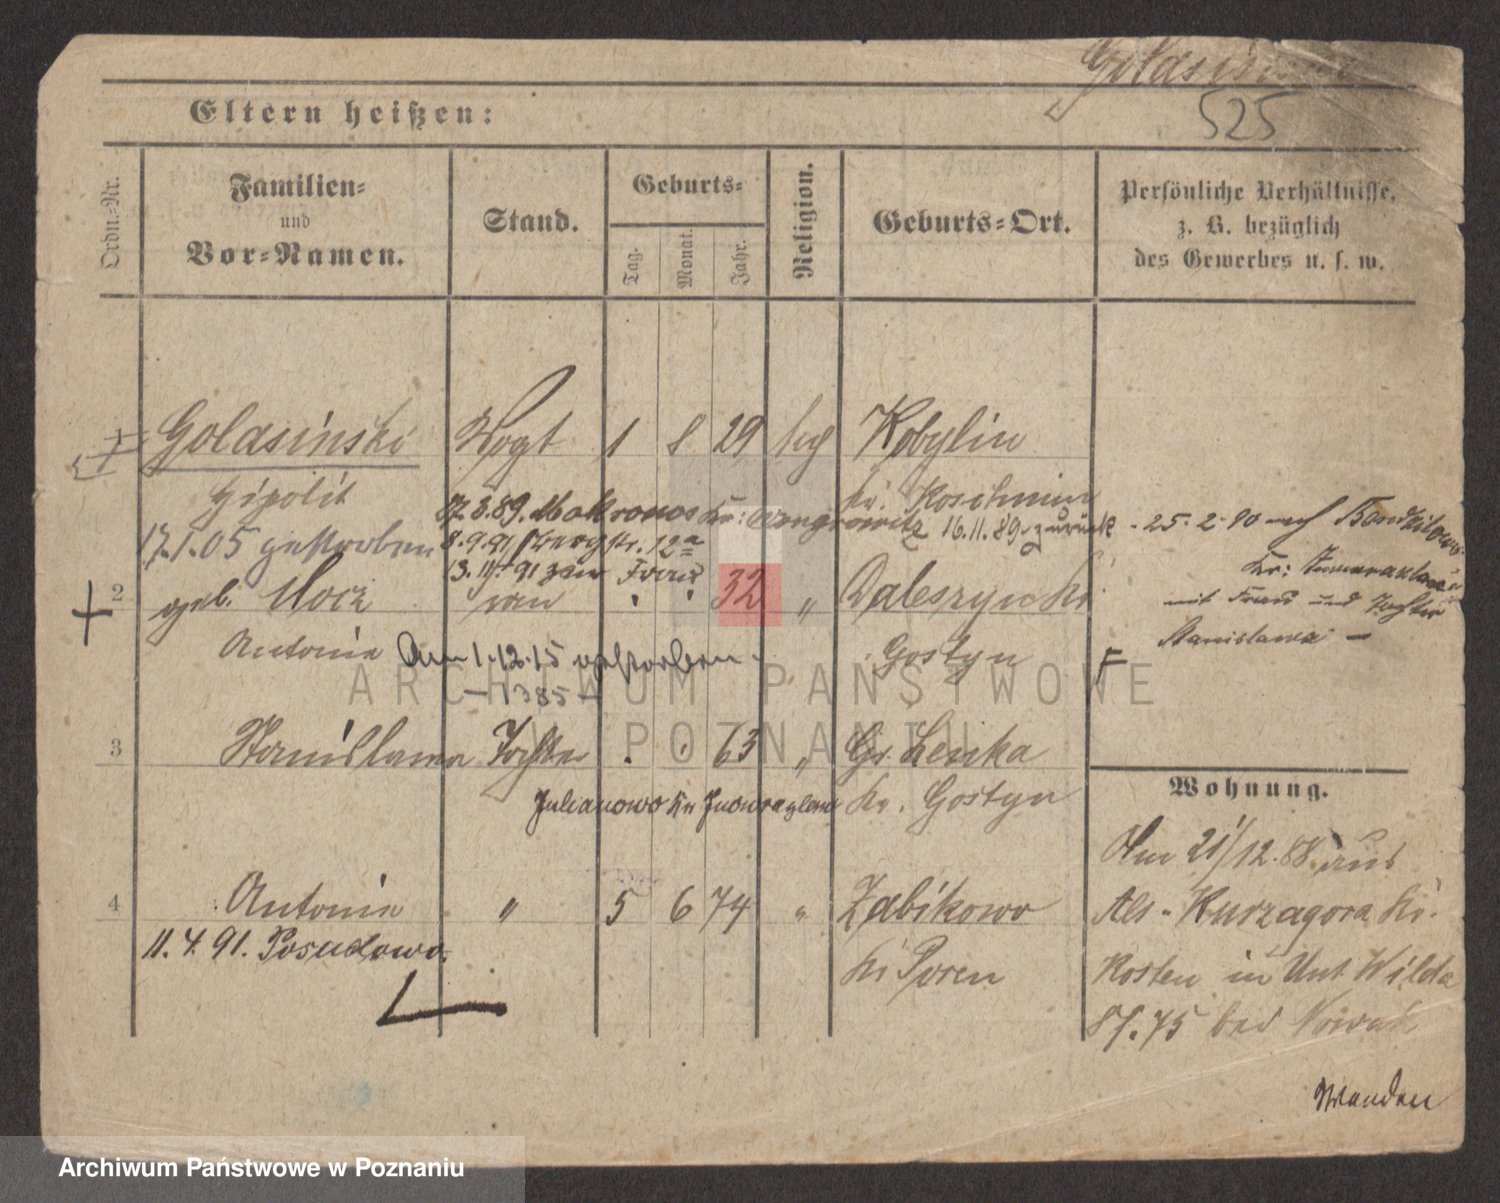 Golasinski
525
Eltern heißen:
Ordn.-Nr.
Familien-
und
Vor-Namen.
Stand.
Geburts-
Tag.
Monat.
Jahr.
Religion.
Geburts-Ort.
Persönliche Verhältnisse,
z. B. bezüglich
des Gewerbes u. s. w.
Golasinski Vogt 1 8 29 Kobylin
Hipolit Kr. Koschmin
27.3.89. Mokronos Kr: Wongrowitz 16.11.89. zurück - 25.2.90 nach
17.1.05 gestorben 8.9.91 Bergstr. 12a
13. 91 zur Frau Kr:
2 geb. Mocz 32 " Daleszynki
mit Frau und Tochter
Stanislawa -
Antonie Am 1.12.15 gestorben Gostyn
- 1385 -
3 Stanislawa Tochter 63 " Gr. Lenka
Julianowo Kr Inowrazlaw Kr. Gostyn
Wohnung.
Am 21/12.88 aus
4 Antonie " 5 6 74 " Zabikowo
Alt-Kurzagora Kr.
11.4.91. Posadowo.
Kr Posen
Kosten in Unt. Wilda
87.75 bei Nowak
Wenden
ARCHIWUM PAŃSTWOWE
W POZNANIU
Archiwum Państwowe w Poznaniu